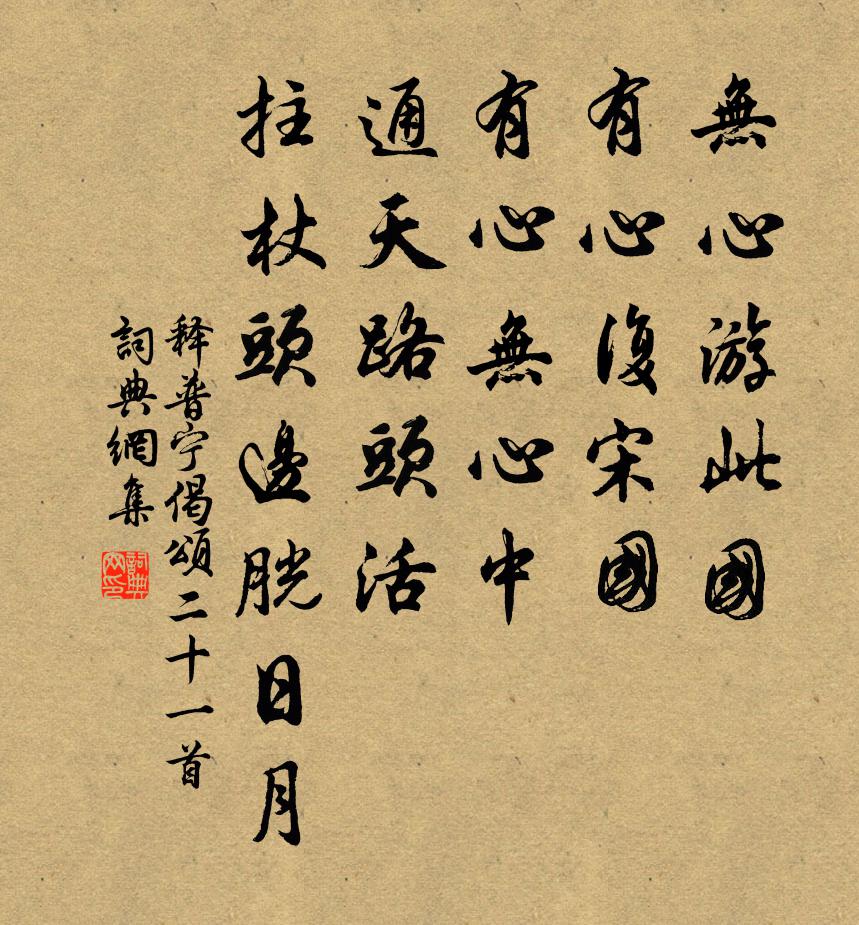 無心游此國
有心復宋國
有心無心中
通天路頭活
拄杖頭邊胱日月
释普宁偈頌二十一首
詞典網集
詞典網印